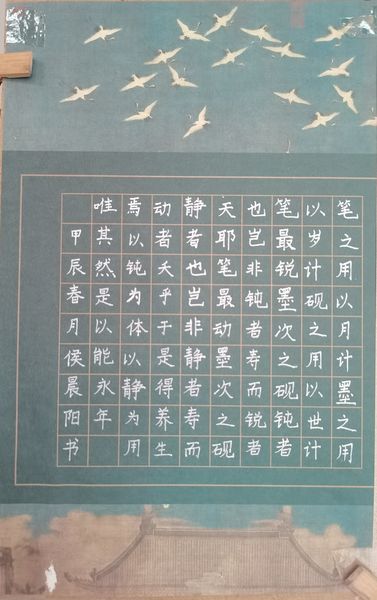 笔之用以月计墨之用
以岁计砚之用以世计
笔最锐墨次之砚钝者
也岂非钝者寿而锐者
夭耶笔最动墨次之砚
静者也岂非静者寿而
动者夭乎于是得养生
焉以钝为体以静为用
唯其然是以能永年
甲辰春月侯晨阳书